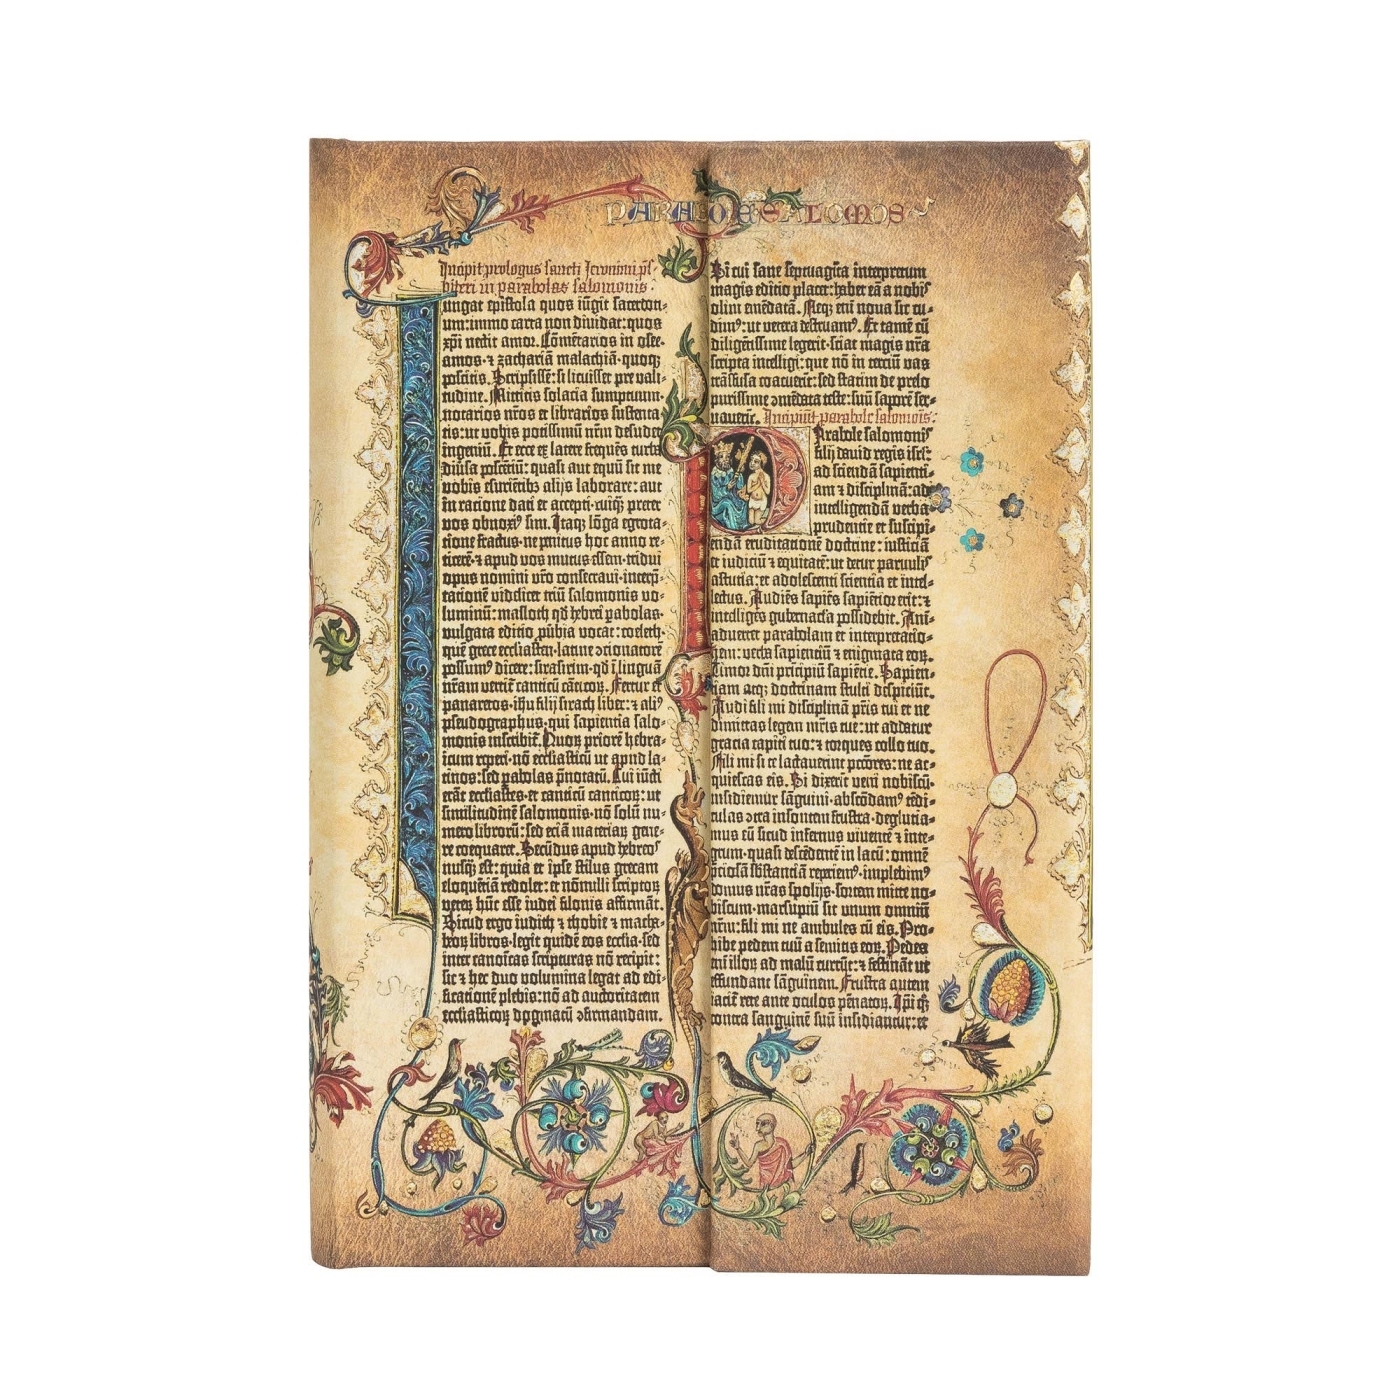 PARABOLE SALOMOIS
Incipit prologus sancti Jeronimi pr̄s-
biteri in parabolas salomonis.
Iungat epistola quos iūgit sacerdoti-
um: immo carta non diuidat: quos
xp̄i nectit amor. Cōmētarios in osee.
amos. ⁊ zachariā malachiā· quoqȝ
poscitis. Scripsissē: si licuisset pre vali-
tudine. Mittitis solacia sumptuum·
notarios nr̄os et librarios sustenta-
tis: ut vobis potissimū nr̄m desudet
ingeniū. Et ecce ex latere frequēs turba
diūsa poscētiū: quasi aut equū sit me
vobis esuriētibȝ alijs laborare: aut
in ratione dati et accepti· cuiqȝ preter
vos obnoxiꝰ sim. Itaqȝ lōga egrota-
tione fractus· ne penitus hoc anno re-
ticerē· ⁊ apud vos mutus essem· tridui
opus nomini vr̄o consecraui· interp̄-
tationē videlicet triū salomonis vo-
luminū: masloth qd̄ hebrei pabolas·
vulgata editio p̄ubia vocat: coeleth·
quē grece ecclīasten· latine ↄcionatorē
possumꝰ dicere: sirasirim· qd̄ ī linguā
nr̄am vertit̄ canticū cāticoꝝ. Fertur et
panaretos· ih̄u filij sirach liber: ⁊ aliꝰ
pseudographus· qui sapientia salo-
monis inscribit̄. Quoꝝ priorē hebra-
icum reperi· nō ecclīasticū ut apud la-
tinos: sed pabolas p̄notatū. Cui iūcti
erāt ecclīastes· et canticū canticoꝝ: ut
similitudinē salomonis· nō solū nu-
mero librorū: sed eciā materiaꝝ gene-
re coequaret. Secūdus apud hebreoꝰ
nusqȝ est: quia et ipse stilus grecam
eloquētiā redolet: et nōnulli scriptoꝝ
veteꝝ hūc esse iudei filonis affirmāt.
Sicud ergo iudith ⁊ thobie ⁊ macha-
beoꝝ libros· legit quidē eos ecclīa· sed
inter canoīcas scripturas nō recipit:
sic ⁊ hec duo volumina legat ad edi-
ficationē plebis: nō ad auctoritatem
ecclīasticoꝝ dogmatū ↄfirmandam.
Si cui sane septuagīta interpretum
magis editio placet: habet eā a nobiꝰ
olim emēdatā. Neqȝ enī noua sic cu-
dimꝰ: ut vetera destruamꝰ. Et tamē cū
diligētissime legerit· sciat magis nr̄a
scripta intelligi: que nō in terciū vas
trāsfusa coacuerīt: sed statim de prelo
purissime ↄmēdata teste: suū saporē ser-
uauerīt. Incipiūt parabole salomōis.
Parabole salomonis
filij dauid regis isrl̄:
ad sciendā sapienti-
am ⁊ disciplinā: ad
intelligendā verba
prudentie et suscipi-
endā eruditationē doctrine: iusticiā
et iudiciū ⁊ equitatē: ut detur paruulis
astutia: et adolescenti scientia et intel-
lectus. Audiēs sapiēs sapiētior erit: ⁊
intelligēs gubernacla possidebit. Ani-
aduertet parabolam et interpretatio-
nem: verba sapientiū ⁊ enigmata eoꝝ.
Timor dn̄i principiū sapiētie. Sapien-
tiam atqȝ doctrinam stulti despiciūt.
Audi fili mi disciplinā pr̄is tui et ne
dimittas legem mr̄is tue: ut addatur
gracia capiti tuo: ⁊ torques collo tuo.
Fili mi si te lactauerint pctōres: ne ac-
quiescas eis. Si dixerīt veni nobiscū·
insidiemur sāguini· abscōdamꝰ tēdi-
culas ↄtra insontem frustra· degluti̅a-
mus eū sicud infernus viuentē ⁊ inte-
grum· quasi descēdentē in lacū: omnē
preciosā sb̄stanciā reperiemꝰ· implebimꝰ
domus nr̄as spolijs· sortem mitte no-
biscum· marsupiū sit unum omniū
nr̄m: fili mi ne ambules cū eis. Pro-
hibe pedem tuū a semitis eoꝝ. Pedes
enī illoꝝ ad malū currūt: ⁊ festināt ut
effundant sāguinem. Frustra autem
iacit̄ rete ante oculos pēnatoꝝ. Ip̄i qȝ
contra sanguinē suū insidiantur: et